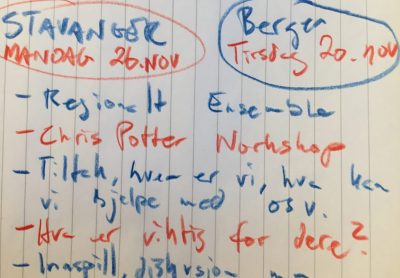 STAVANGER
MANDAG 26.NOV
Bergen
Tirsdag 20.nov
- Regionalt Ensemble
- Chris Potter Workshop
- Tiltak, hvem er vi, hva kan
vi hjelpe med osv.
- Hva er viktig for dere?
- Innspill, diskusjon